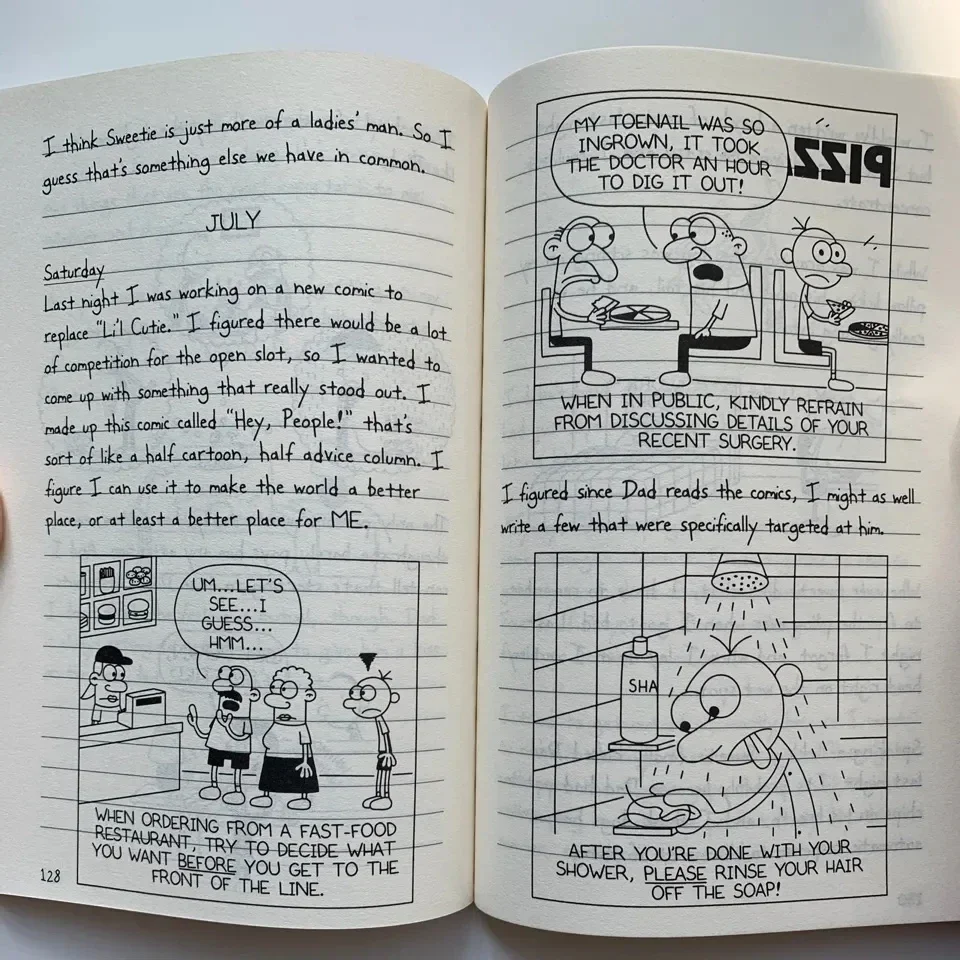 I think Sweetie is just more of a ladies' man. So I
guess that's something else we have in common.
JULY
Saturday
Last night I was working on a new comic to
replace "Li'l Cutie." I figured there would be a lot
of competition for the open slot, so I wanted to
come up with something that really stood out. I
made up this comic called "Hey, People!" that's
sort of like a half cartoon, half advice column. I
figure I can use it to make the world a better
place, or at least a better place for ME.
UM...LET'S
SEE...I
GUESS...
HMM...
WHEN ORDERING FROM A FAST-FOOD
RESTAURANT, TRY TO DECIDE WHAT
YOU WANT BEFORE YOU GET TO THE
FRONT OF THE LINE.
128
MY TOENAIL WAS SO
INGROWN, IT TOOK
THE DOCTOR AN HOUR
TO DIG IT OUT!
PIZZ
WHEN IN PUBLIC, KINDLY REFRAIN
FROM DISCUSSING DETAILS OF YOUR
RECENT SURGERY.
I figured since Dad reads the comics, I might as well
write a few that were specifically targeted at him.
SHA
AFTER YOU'RE DONE WITH YOUR
SHOWER, PLEASE RINSE YOUR HAIR
OFF THE SOAP!